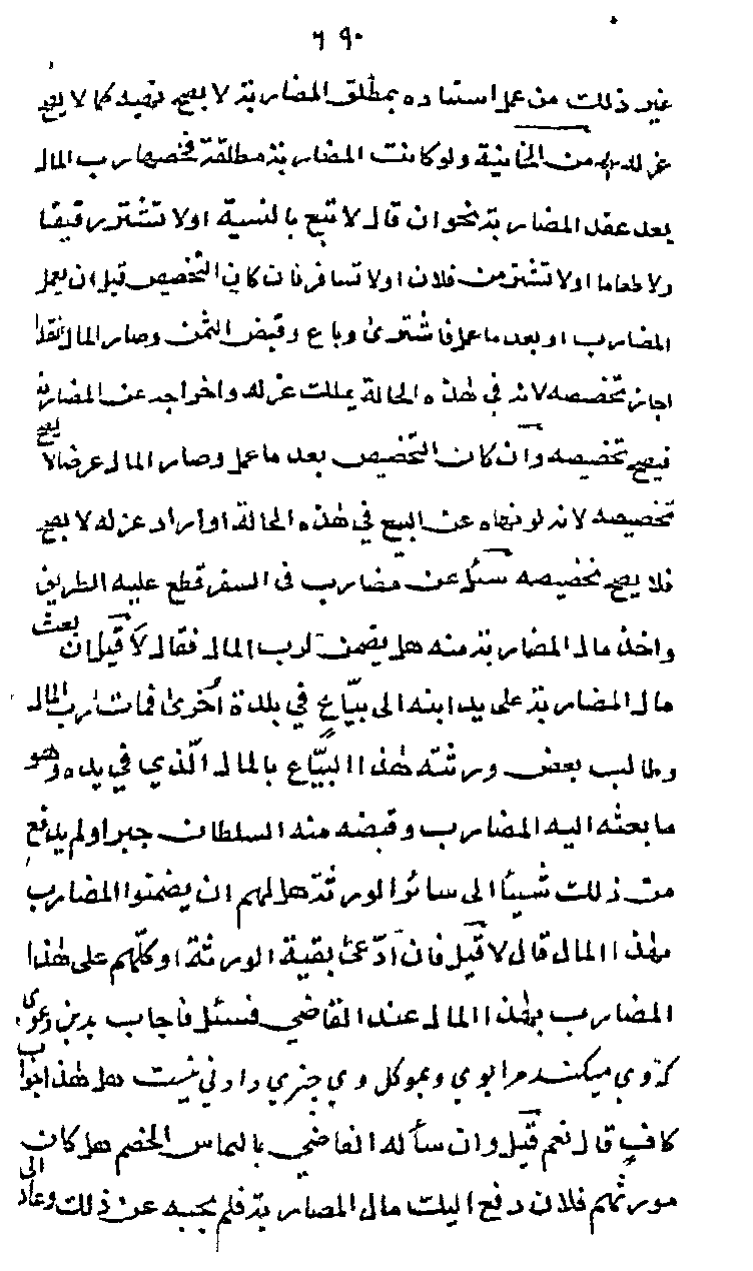 ٦٩٠
غير ذلك من عمل استفاده بمطلق المضاربة لا يصح نهيه كما لا يصح
عزله من الخانية ولو كانت المضاربة مطلقة فخصها رب المال
بعد عقد المضاربة نحو ان قال لا تبع بالنسية او لا تشتر رقيقا
ولا طعاما او لا تشتر من فلان او لا تسافر فان كان التخصيص قبل ان يعمل
المضارب او بعد ما عمل فاشترى وباع وقبض الثمن وصار المال نقدا
جاز تخصيصه لانه في هذه الحالة يملك عزله واخراجه عن المضاربة
فيصح تخصيصه وان كان التخصيص بعد ما عمل وصار المال عرضا لا يصح
تخصيصه لانه لو نهاه عن البيع في هذه الحالة او اراد عزله لا يصح
فلا يصح تخصيصه سئل عن مضارب في السفر قطع عليه الطريق
واخذ مال المضاربة منه هل يضمن لرب المال فقال لا قيل ان بعث
مال المضاربة على يد ابنه الى بيّاع في بلدة أخرى فمات رب المال
وطالب بعض ورثته هذا البيّاع بالمال الّذي في يده وهو
ما بعثه اليه المضارب وقبضه منه السلطان جبرا ولم يدفع
من ذلك شيأ الى سائر الورثة هل لهم ان يضمنوا المضارب
بهذا المال قال لا قيل فان ادّعى بقية الورثة او كلّهم على هذا
المضارب بهذا المال عند القاضي فسئل فاجاب بدين دعوى
كه وي ميكند مرا بوي وبموكل وي چيزي دادني نيست هل هذا الجواب
كاف قال نعم قيل وان سأله القاضي بالتماس الخصم هل كان
مورثهم فلان دفع اليك مال المضاربة فلم يجبه عن ذلك وعاد الى